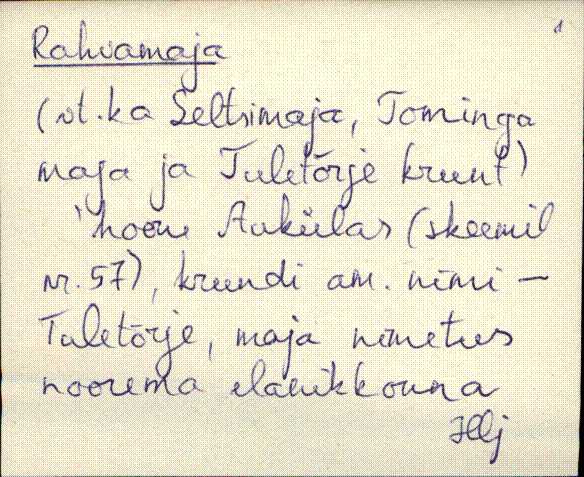 1
Rahvamaja
(vt. ka Seltsimaja, Tominga
maja ja Tuletõrje krunt)
hoone Aukülas (skeemil
nr. 57), krundi am. nimi –
Tuletõrje, maja nimetus
noorema elanikkonna